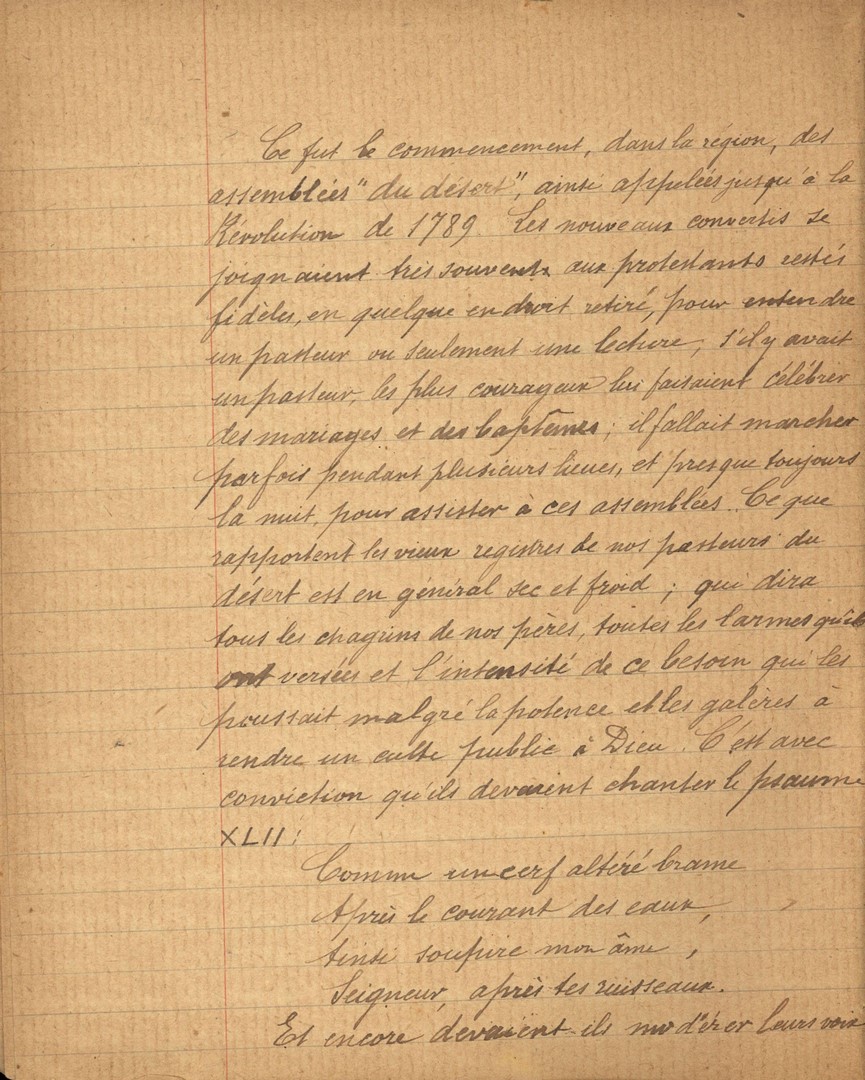 Ce fut le commencement, dans la région, des
assemblées "du désert", ainsi appelées jusqu'à la
Révolution de 1789. Les nouveaux convertis se
joignaient très souvent aux protestants restés
fidèles, en quelque endroit retiré, pour entendre
un pasteur ou seulement une lecture, s'il y avait
un pasteur, les plus courageux lui faisaient célébrer
des mariages et des baptêmes; il fallait marcher
parfois pendant plusieurs lieues, et presque toujours
la nuit, pour assister à ces assemblées. Ce que
rapportent les vieux registres de nos pasteurs du
désert est en général sec et froid; qui dira
tous les chagrins de nos pères, toutes les larmes qu'ils
ont versées et l'intensité de ce besoin qui les
poussait malgré la potence et les galères à
rendre un culte public à Dieu. C'est avec
conviction qu'ils devaient chanter le psaume
XLII:
Comme un cerf altéré brame
Après le courant des eaux,
Ainsi soupire mon âme,
Seigneur, après tes ruisseaux.
Et encore devaient-ils modérer leurs voix